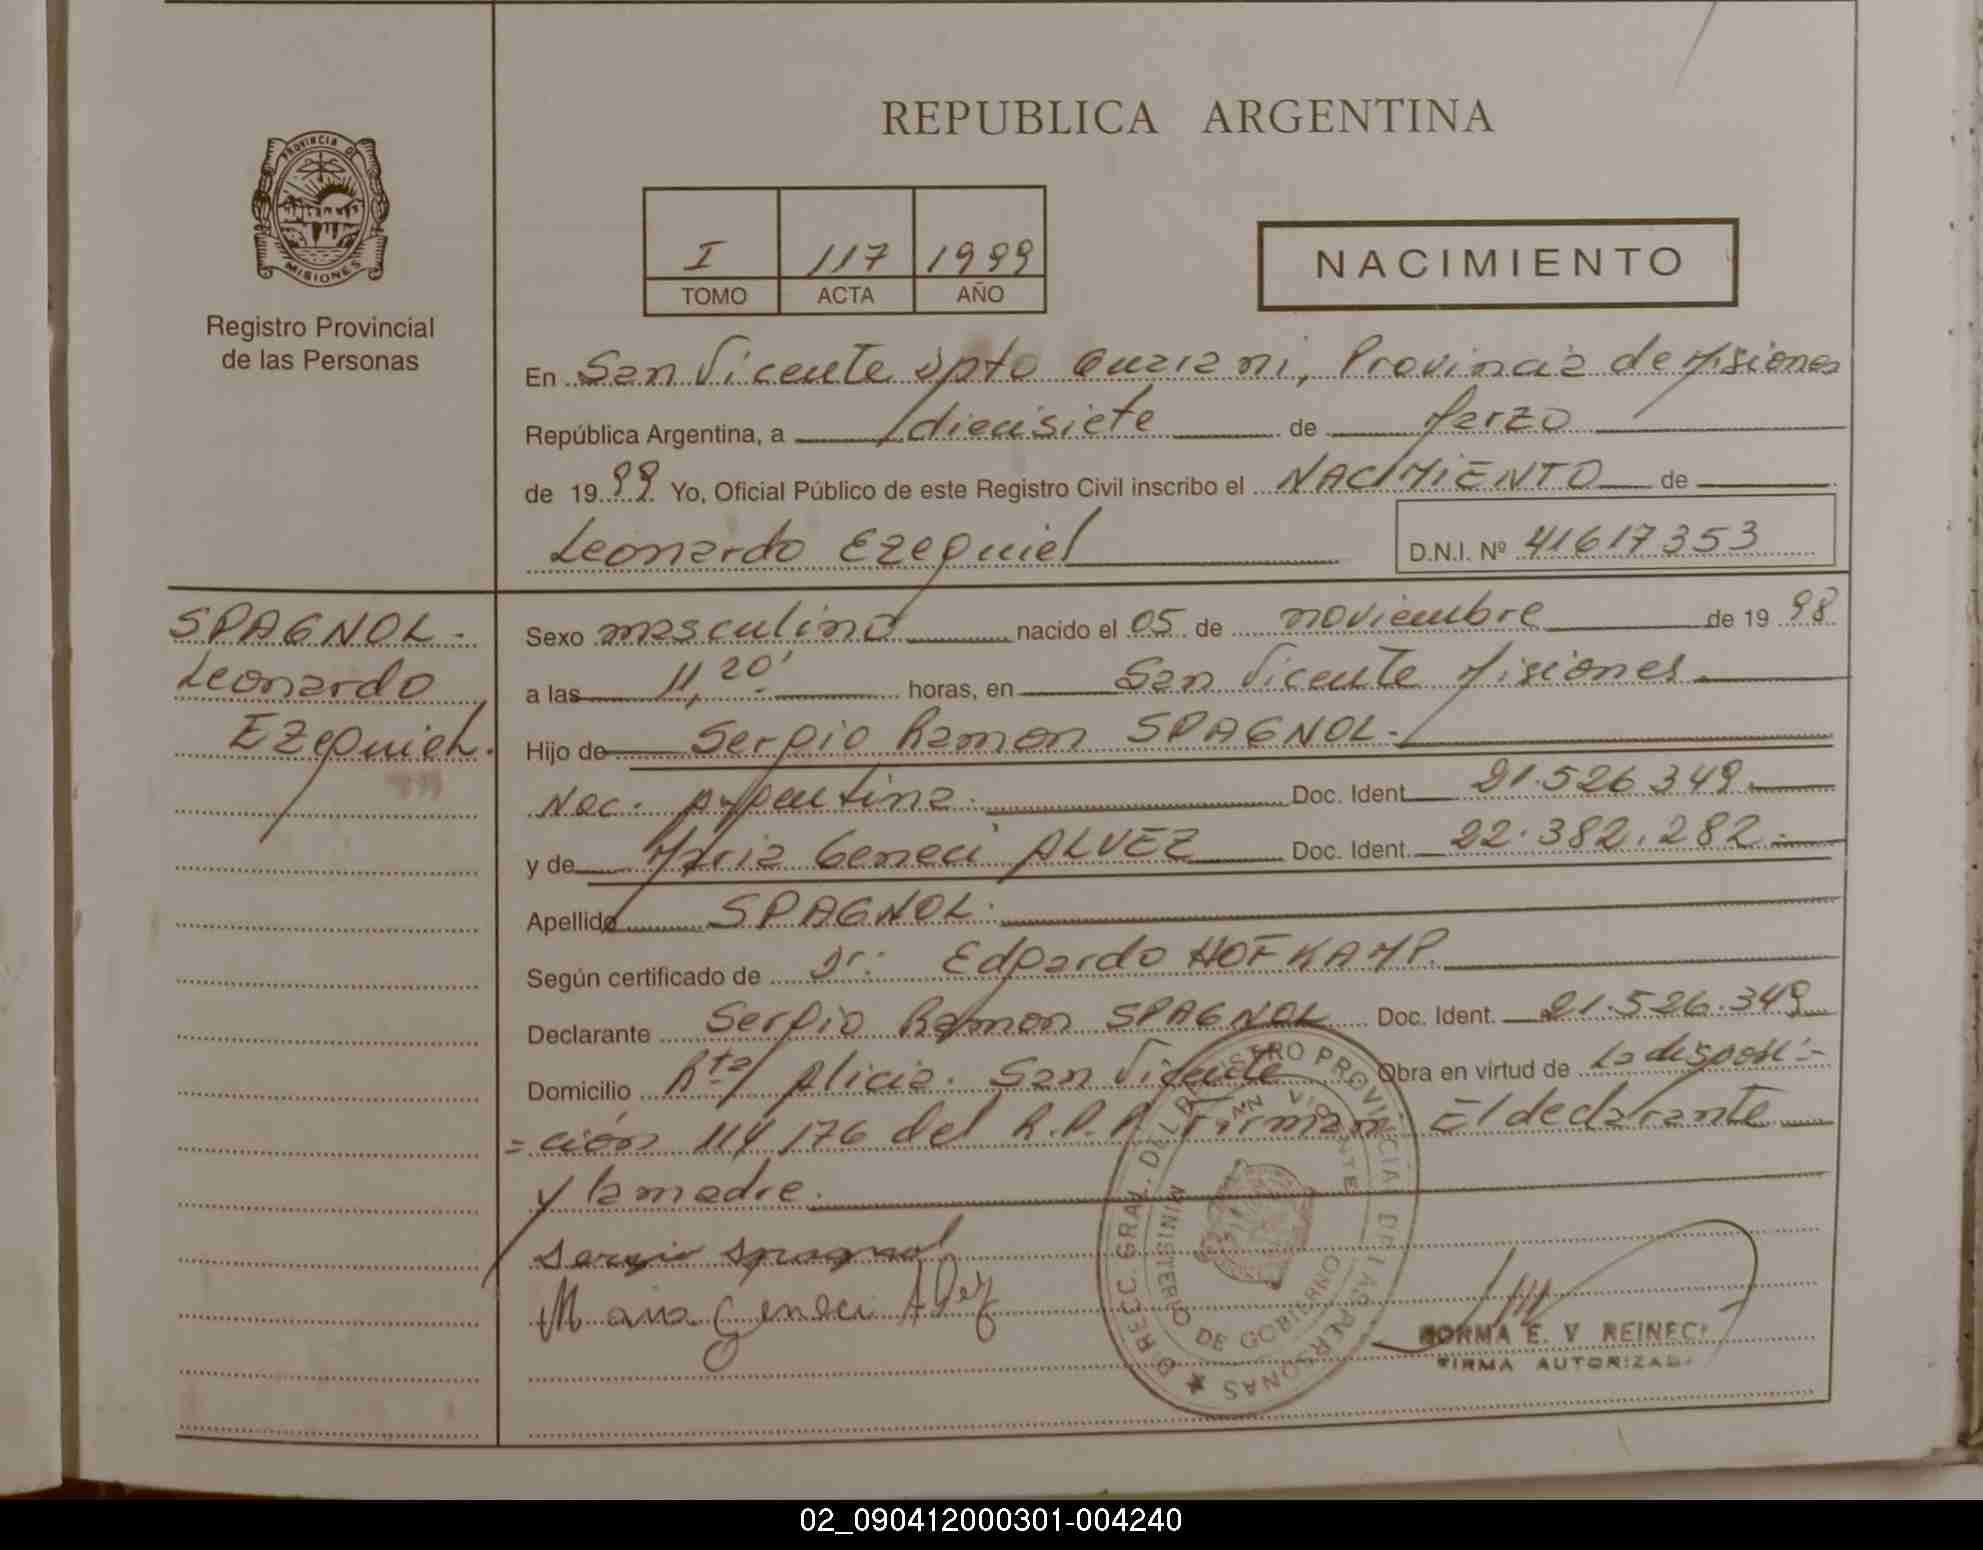 REPUBLICA ARGENTINA
PROVINCIA DE
MISIONES
Registro Provincial
de las Personas
I 117 1999
TOMO ACTA AÑO
NACIMIENTO
En San Vicente Dpto Guarani, Provincia de Misiones
República Argentina, a diecisiete de Marzo
de 1999 Yo, Oficial Público de este Registro Civil inscribo el NACIMIENTO de
Leonardo Ezequiel D.N.I. Nº 41617353
SPAGNOL.-
Leonardo
Ezequiel.
Sexo masculino nacido el 05 de noviembre de 1998
a las 11,20' horas, en San Vicente Misiones
Hijo de Sergio Ramon SPAGNOL.-
Nac. Argentina. Doc. Ident. 21.526.349.
y de Maria Geneci ALVEZ Doc. Ident. 22.382.282.-
Apellido SPAGNOL.
Según certificado de Dr. Edgardo HOFKAMP.
Declarante Sergio Ramon SPAGNOL Doc. Ident. 21.526.349
Domicilio Rta/ Alicia. San Vicente Obra en virtud de La disposi-
=ción 114/176 del R.P.P. Firman El declarante
y la madre.
Sergio Spagnol
Maria Geneci Alvez
DIRECC. GRAL. DEL REGISTRO PROVINCIAL DE LAS PERSONAS
MINISTERIO DE GOBIERNO
SAN VICENTE
NORMA E. V. REINECK
FIRMA AUTORIZADA
02_090412000301-004240